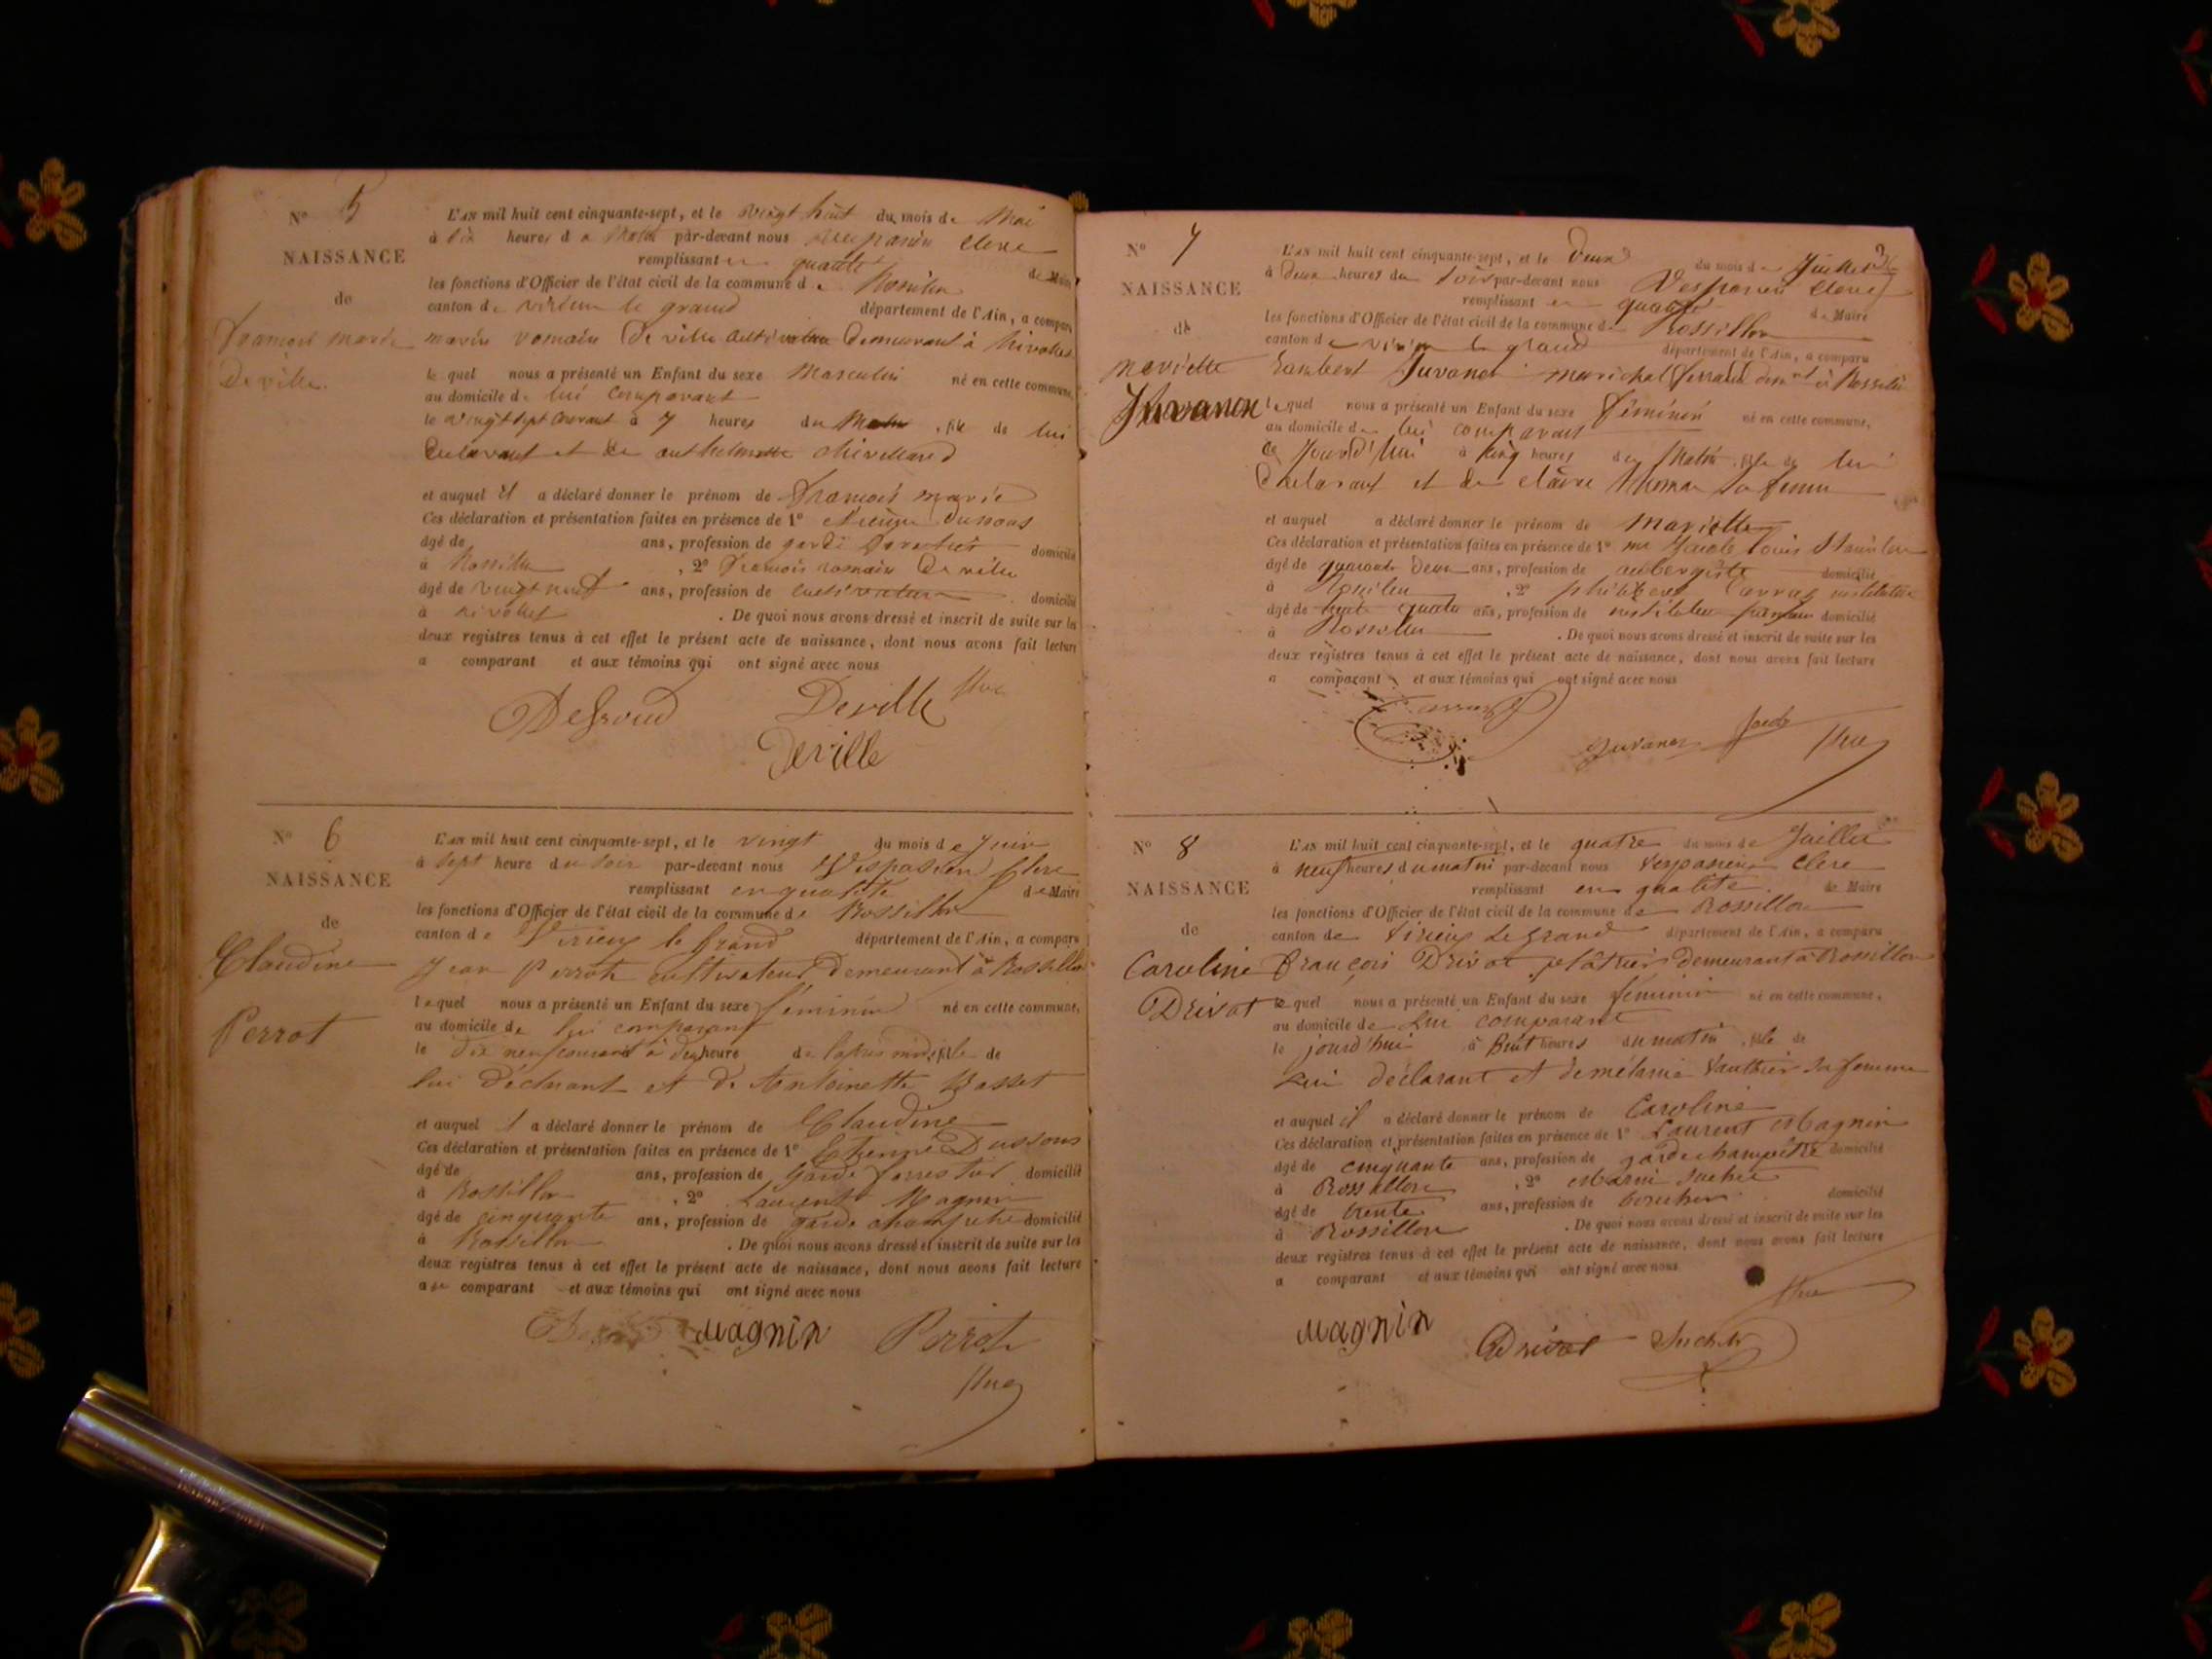 N° 5
NAISSANCE
de
François marie
Deville.
L'AN mil huit cent cinquante-sept, et le vingt huit du mois de Mai
à dix heures d par-devant nous Clerc
remplissant en qualité de Maire
les fonctions d'Officier de l'état civil de la commune de Rossillon
canton de virieu le grand département de l'Ain, a comparu
marin romain Deville demeurant à
lequel nous a présenté un Enfant du sexe Masculin né en cette commune,
au domicile de lui comparant
le vingt sept courant à 7 heures du Matin, fils de lui
déclarant et de
et auquel il a déclaré donner le prénom de François marie
Ces déclaration et présentation faites en présence de 1° Dussous
âgé de ans, profession de garde domicilié
à Rossillon, 2° François romain Deville
âgé de vingt neuf ans, profession de cultivateur domicilié
à . De quoi nous avons dressé et inscrit de suite sur les
deux registres tenus à cet effet le présent acte de naissance, dont nous avons fait lecture
a comparant et aux témoins qui ont signé avec nous
Deville
Deville
N° 6
NAISSANCE
de
Claudine
Perrot
L'AN mil huit cent cinquante-sept, et le vingt du mois de Juin
à sept heure du soir par-devant nous Vespasien Clerc
remplissant en qualité de Maire
les fonctions d'Officier de l'état civil de la commune de Rossillon
canton de Virieu le Grand département de l'Ain, a comparu
Jean Perrot cultivateur Demeurant à Rossillon
lequel nous a présenté un Enfant du sexe féminin né en cette commune,
au domicile de lui comparant
le dix neuf courant à heure de l'après midi, fille de
lui déclarant et de Antoinette Basset
et auquel il a déclaré donner le prénom de Claudine
Ces déclaration et présentation faites en présence de 1° Etienne Dussous
âgé de ans, profession de Garde forrestier domicilié
à Rossillon, 2° Laurent Magnin
âgé de cinquante ans, profession de garde champetre domicilié
à Rossillon . De quoi nous avons dressé et inscrit de suite sur les
deux registres tenus à cet effet le présent acte de naissance, dont nous avons fait lecture
a comparant et aux témoins qui ont signé avec nous
Magnin Perrot
N° 7
NAISSANCE
de
mariette
Juvanon
L'AN mil huit cent cinquante-sept, et le Deux du mois de Juillet
à Deux heures du soir par-devant nous Vespasien Clerc
remplissant en qualité de Maire
les fonctions d'Officier de l'état civil de la commune de Rossillon
canton de virieu le grand département de l'Ain, a comparu
Lambert marichal ferrand à
lequel nous a présenté un Enfant du sexe féminin né en cette commune,
au domicile de lui comparant
Jourd'hui à cinq heures du Matin, fille de lui
Déclarant et de claire sa femme
et auquel a déclaré donner le prénom de Mariette
Ces déclaration et présentation faites en présence de 1° louis
âgé de quarante Deux ans, profession de aubergiste domicilié
à Rossillon, 2° philibert
âgé de ans, profession de domicilié
à Rossillon . De quoi nous avons dressé et inscrit de suite sur les
deux registres tenus à cet effet le présent acte de naissance, dont nous avons fait lecture
a comparant et aux témoins qui ont signé avec nous
N° 8
NAISSANCE
de
Caroline
Drivat
L'AN mil huit cent cinquante-sept, et le quatre du mois de Juillet
à neuf heures du matin par-devant nous Vespasien Clerc
remplissant en qualité de Maire
les fonctions d'Officier de l'état civil de la commune de Rossillon
canton de Virieu Le Grand département de l'Ain, a comparu
François Drivat platrier demeurant à Rossillon
lequel nous a présenté un Enfant du sexe féminin né en cette commune,
au domicile de Lui comparant
le jourd'hui à huit heures du matin, fille de
Lui déclarant et de mélanie Vauthier sa femme
et auquel il a déclaré donner le prénom de Caroline
Ces déclaration et présentation faites en présence de 1° Laurent Magnin
âgé de cinquante ans, profession de gardechampetre domicilié
à Rossillon, 2° Marin
âgé de trente ans, profession de domicilié
à Rossillon . De quoi nous avons dressé et inscrit de suite sur les
deux registres tenus à cet effet le présent acte de naissance, dont nous avons fait lecture
a comparant et aux témoins qui ont signé avec nous.
Magnin Drivat